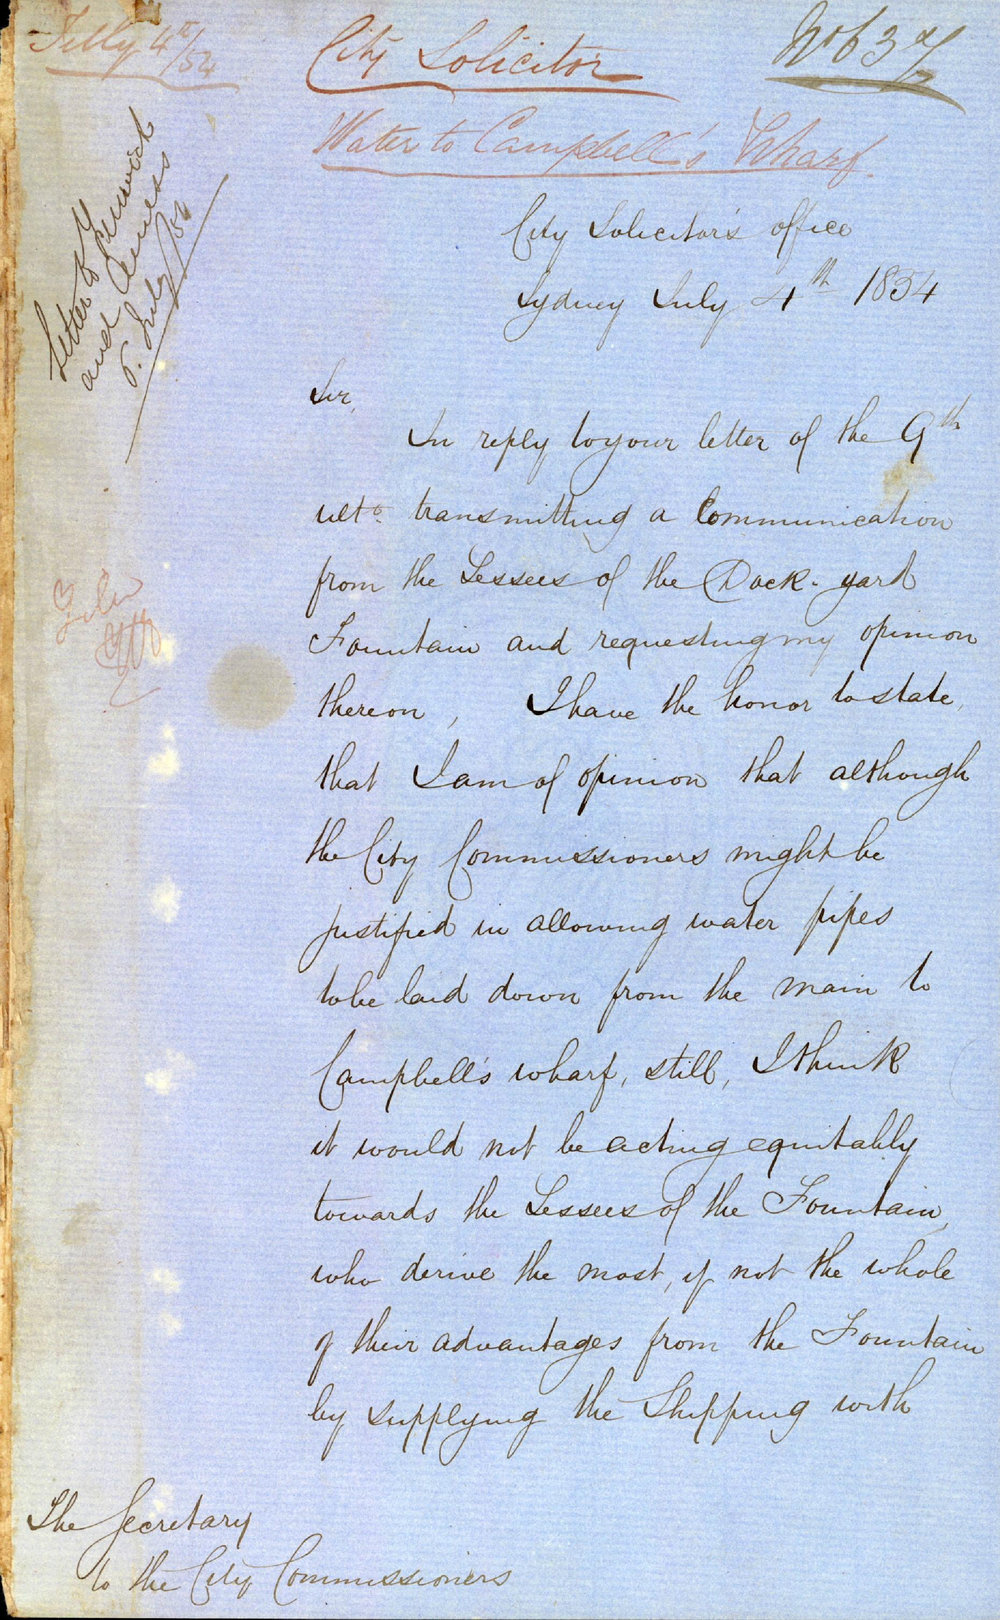 July 4th/54
City Solicitor
No 637
Water to Campbell's Wharf.
Letter to
and
6. July/54
City Solicitor's office
Sydney July 4th 1854
Sir,
In reply to your letter of the 9th
ulto. transmitting a Communication
from the Lessees of the Dock-yard
Fountain and requesting my opinion
thereon, I have the honor to state,
that I am of opinion that although
the City Commissioners might be
justified in allowing water pipes
to be laid down from the main to
Campbell's wharf, still, I think
it would not be acting equitably
towards the Lessees of the Fountain,
who derive the most, if not the whole
of their advantages from the Fountain
by supplying the Shipping with
File
The Secretary
to the City Commissioners